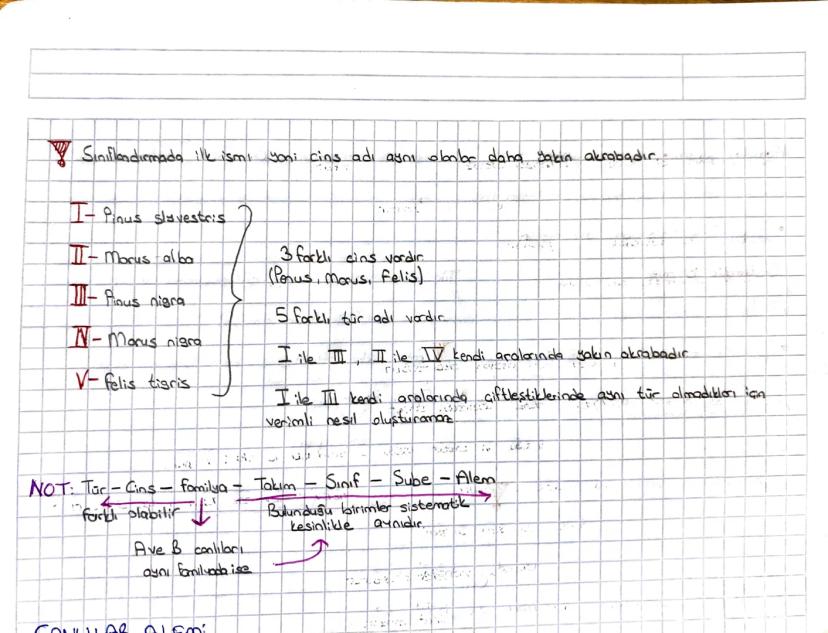 Sınıflandırmada ilk ismi yani cins adı aynı olanlar daha yakın akrabadır.
I- Pinus slyvestris
II- Morus alba
III- Pinus nigra
IV- Morus nigra
V- Felis tigris
3 farklı cins vardır
(Penus, Morus, Felis)
5 farklı tür adı vardır
I ile III, II ile IV kendi aralarında yakın akrabadır
I ile III kendi aralarında çiftleştiklerinde aynı tür olmadıkları için
verimli nesil oluşturamaz
NOT: Tür - Cins - familya - Takım - Sınıf - Şube - Alem
farklı olabilir
Bulunduğu birimler sistematik
kesinlikle aynıdır.
A ve B canlıları
aynı familyada ise